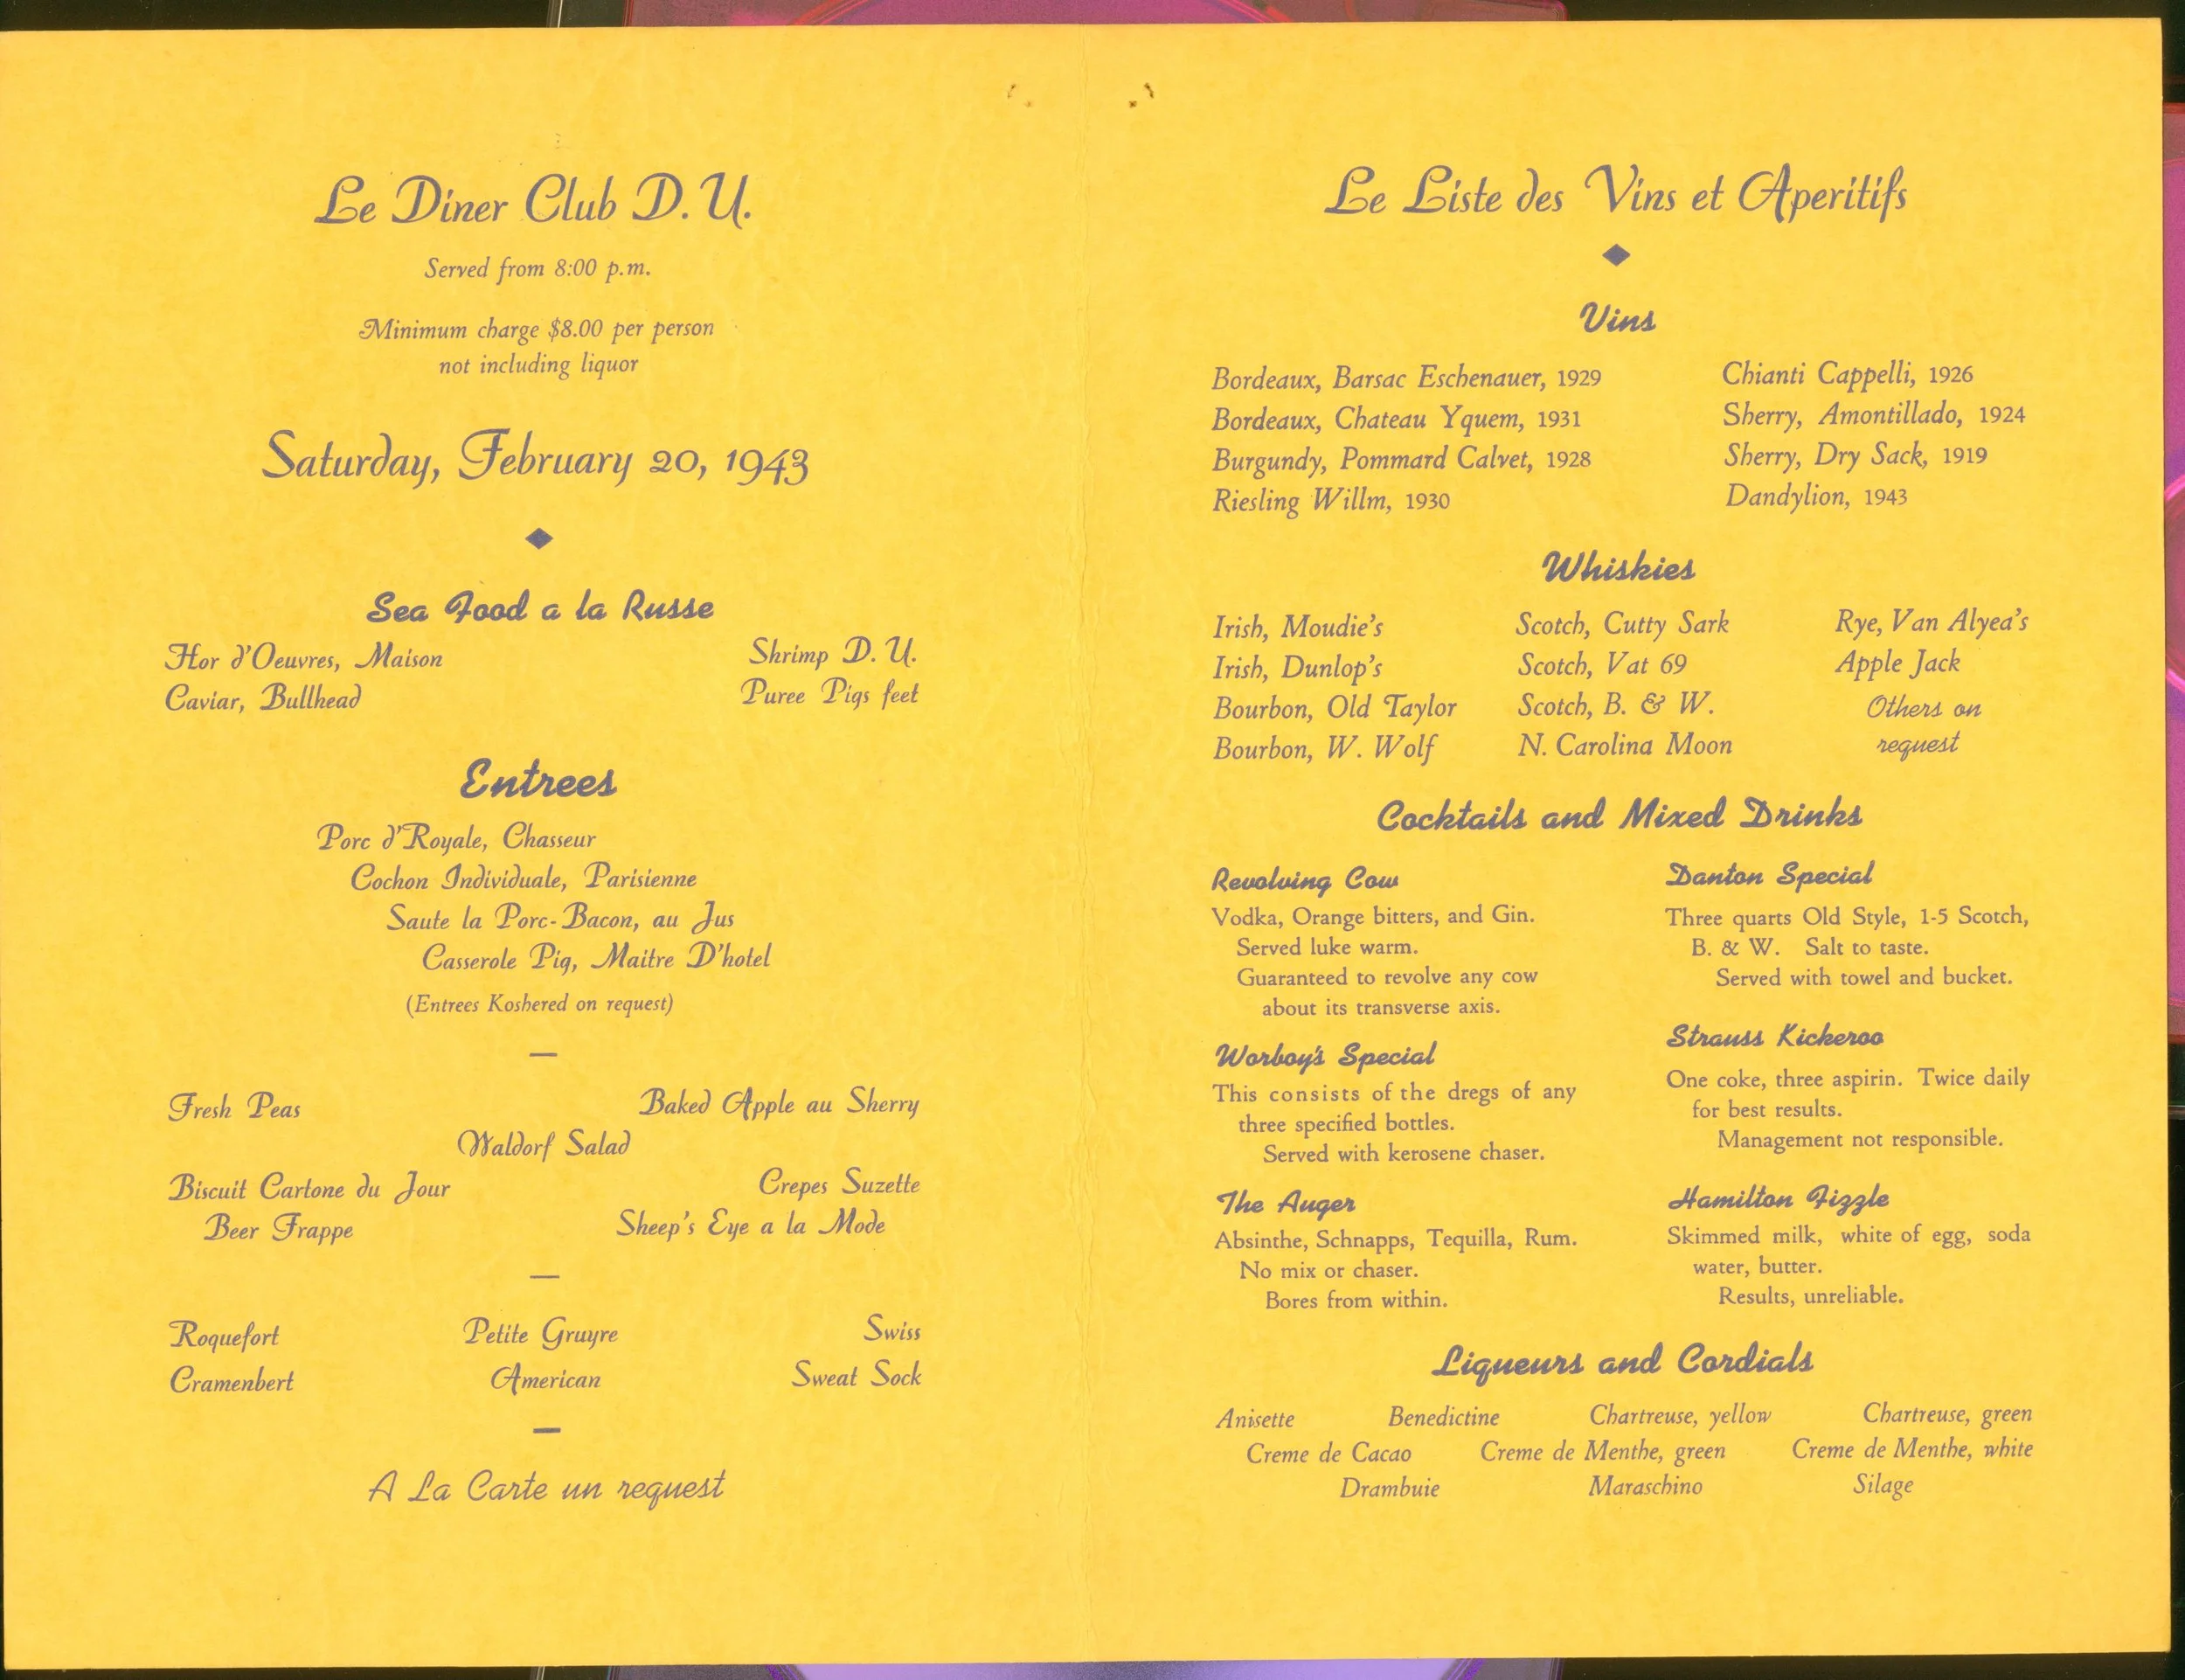 Le Diner Club D. U.
Served from 8:00 p.m.
Minimum charge $8.00 per person
not including liquor
Saturday, February 20, 1943
Sea Food a la Russe
Hor d'Oeuvres, Maison Shrimp D. U.
Caviar, Bullhead Puree Pigs feet
Entrees
Porc d'Royale, Chasseur
Cochon Individuale, Parisienne
Saute la Porc-Bacon, au Jus
Casserole Pig, Maitre D'hotel
(Entrees Koshered on request)
Fresh Peas Baked Apple au Sherry
Waldorf Salad
Biscuit Cartone du Jour Crepes Suzette
Beer Frappe Sheep's Eye a la Mode
Roquefort Petite Gruyre Swiss
Cramenbert American Sweat Sock
A La Carte un request
Le Liste des Vins et Aperitifs
Vins
Bordeaux, Barsac Eschenauer, 1929 Chianti Cappelli, 1926
Bordeaux, Chateau Yquem, 1931 Sherry, Amontillado, 1924
Burgundy, Pommard Calvet, 1928 Sherry, Dry Sack, 1919
Riesling Willm, 1930 Dandylion, 1943
Whiskies
Irish, Moudie's Scotch, Cutty Sark Rye, Van Alyea's
Irish, Dunlop's Scotch, Vat 69 Apple Jack
Bourbon, Old Taylor Scotch, B. & W. Others on
Bourbon, W. Wolf N. Carolina Moon request
Cocktails and Mixed Drinks
Revolving Cow
Vodka, Orange bitters, and Gin.
Served luke warm.
Guaranteed to revolve any cow
about its transverse axis.
Worboy's Special
This consists of the dregs of any
three specified bottles.
Served with kerosene chaser.
The Auger
Absinthe, Schnapps, Tequilla, Rum.
No mix or chaser.
Bores from within.
Danton Special
Three quarts Old Style, 1-5 Scotch,
B. & W. Salt to taste.
Served with towel and bucket.
Strauss Kickeroo
One coke, three aspirin. Twice daily
for best results.
Management not responsible.
Hamilton Fizzle
Skimmed milk, white of egg, soda
water, butter.
Results, unreliable.
Liqueurs and Cordials
Anisette Benedictine Chartreuse, yellow Chartreuse, green
Creme de Cacao Creme de Menthe, green Creme de Menthe, white
Drambuie Maraschino Silage